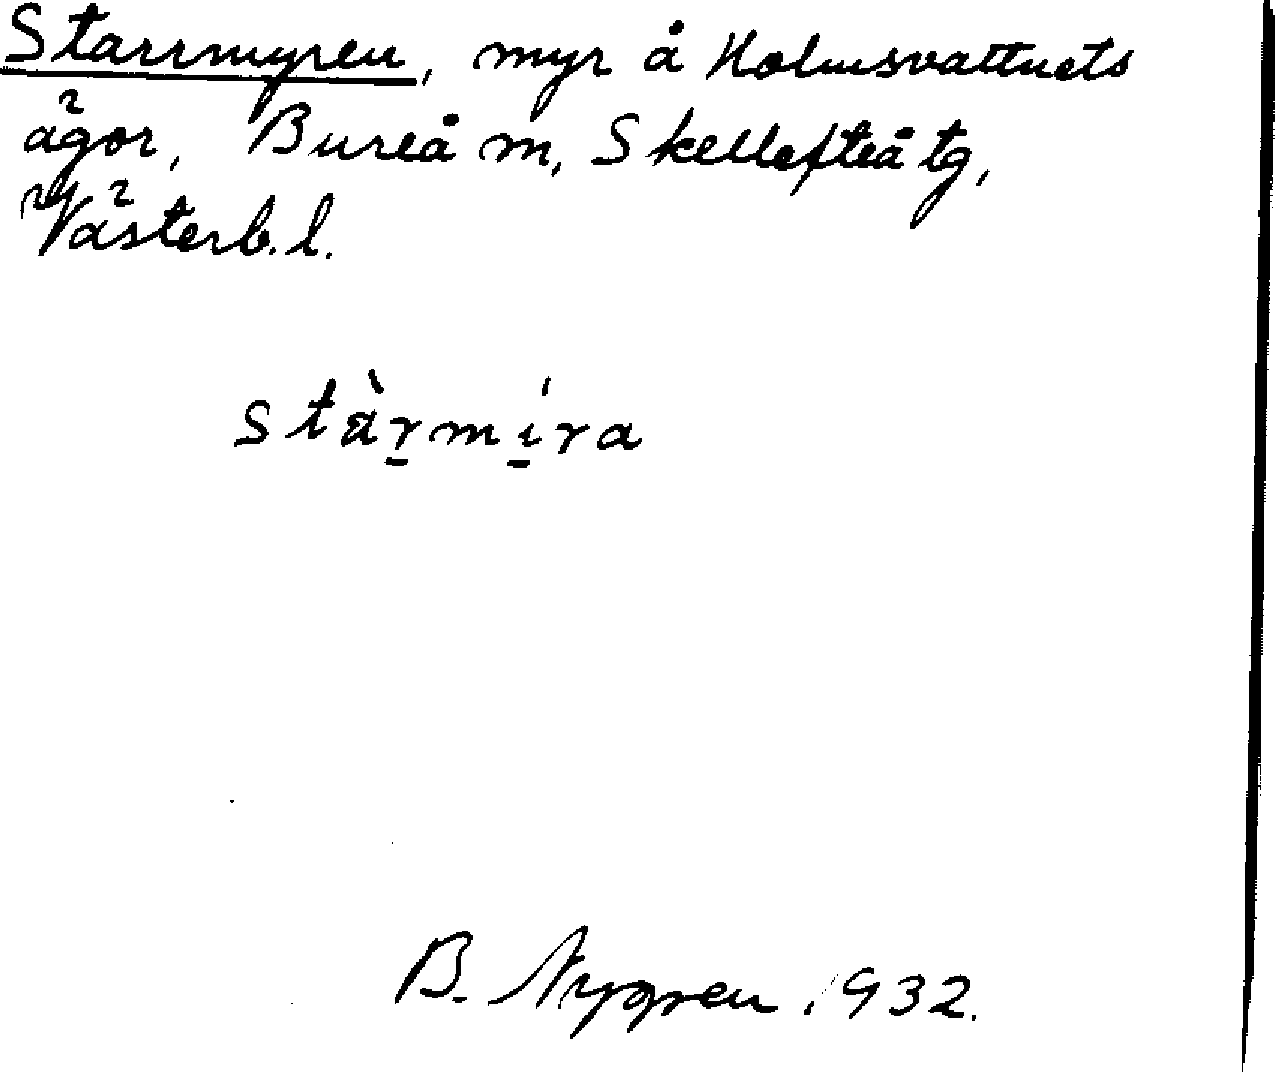 Starrmyren, myr å Holmsvattnets
ägor, Bureå m, Skellefteå tg,
Västerb.l.
stàr̠mí̠ra
B. Nygren 1932.